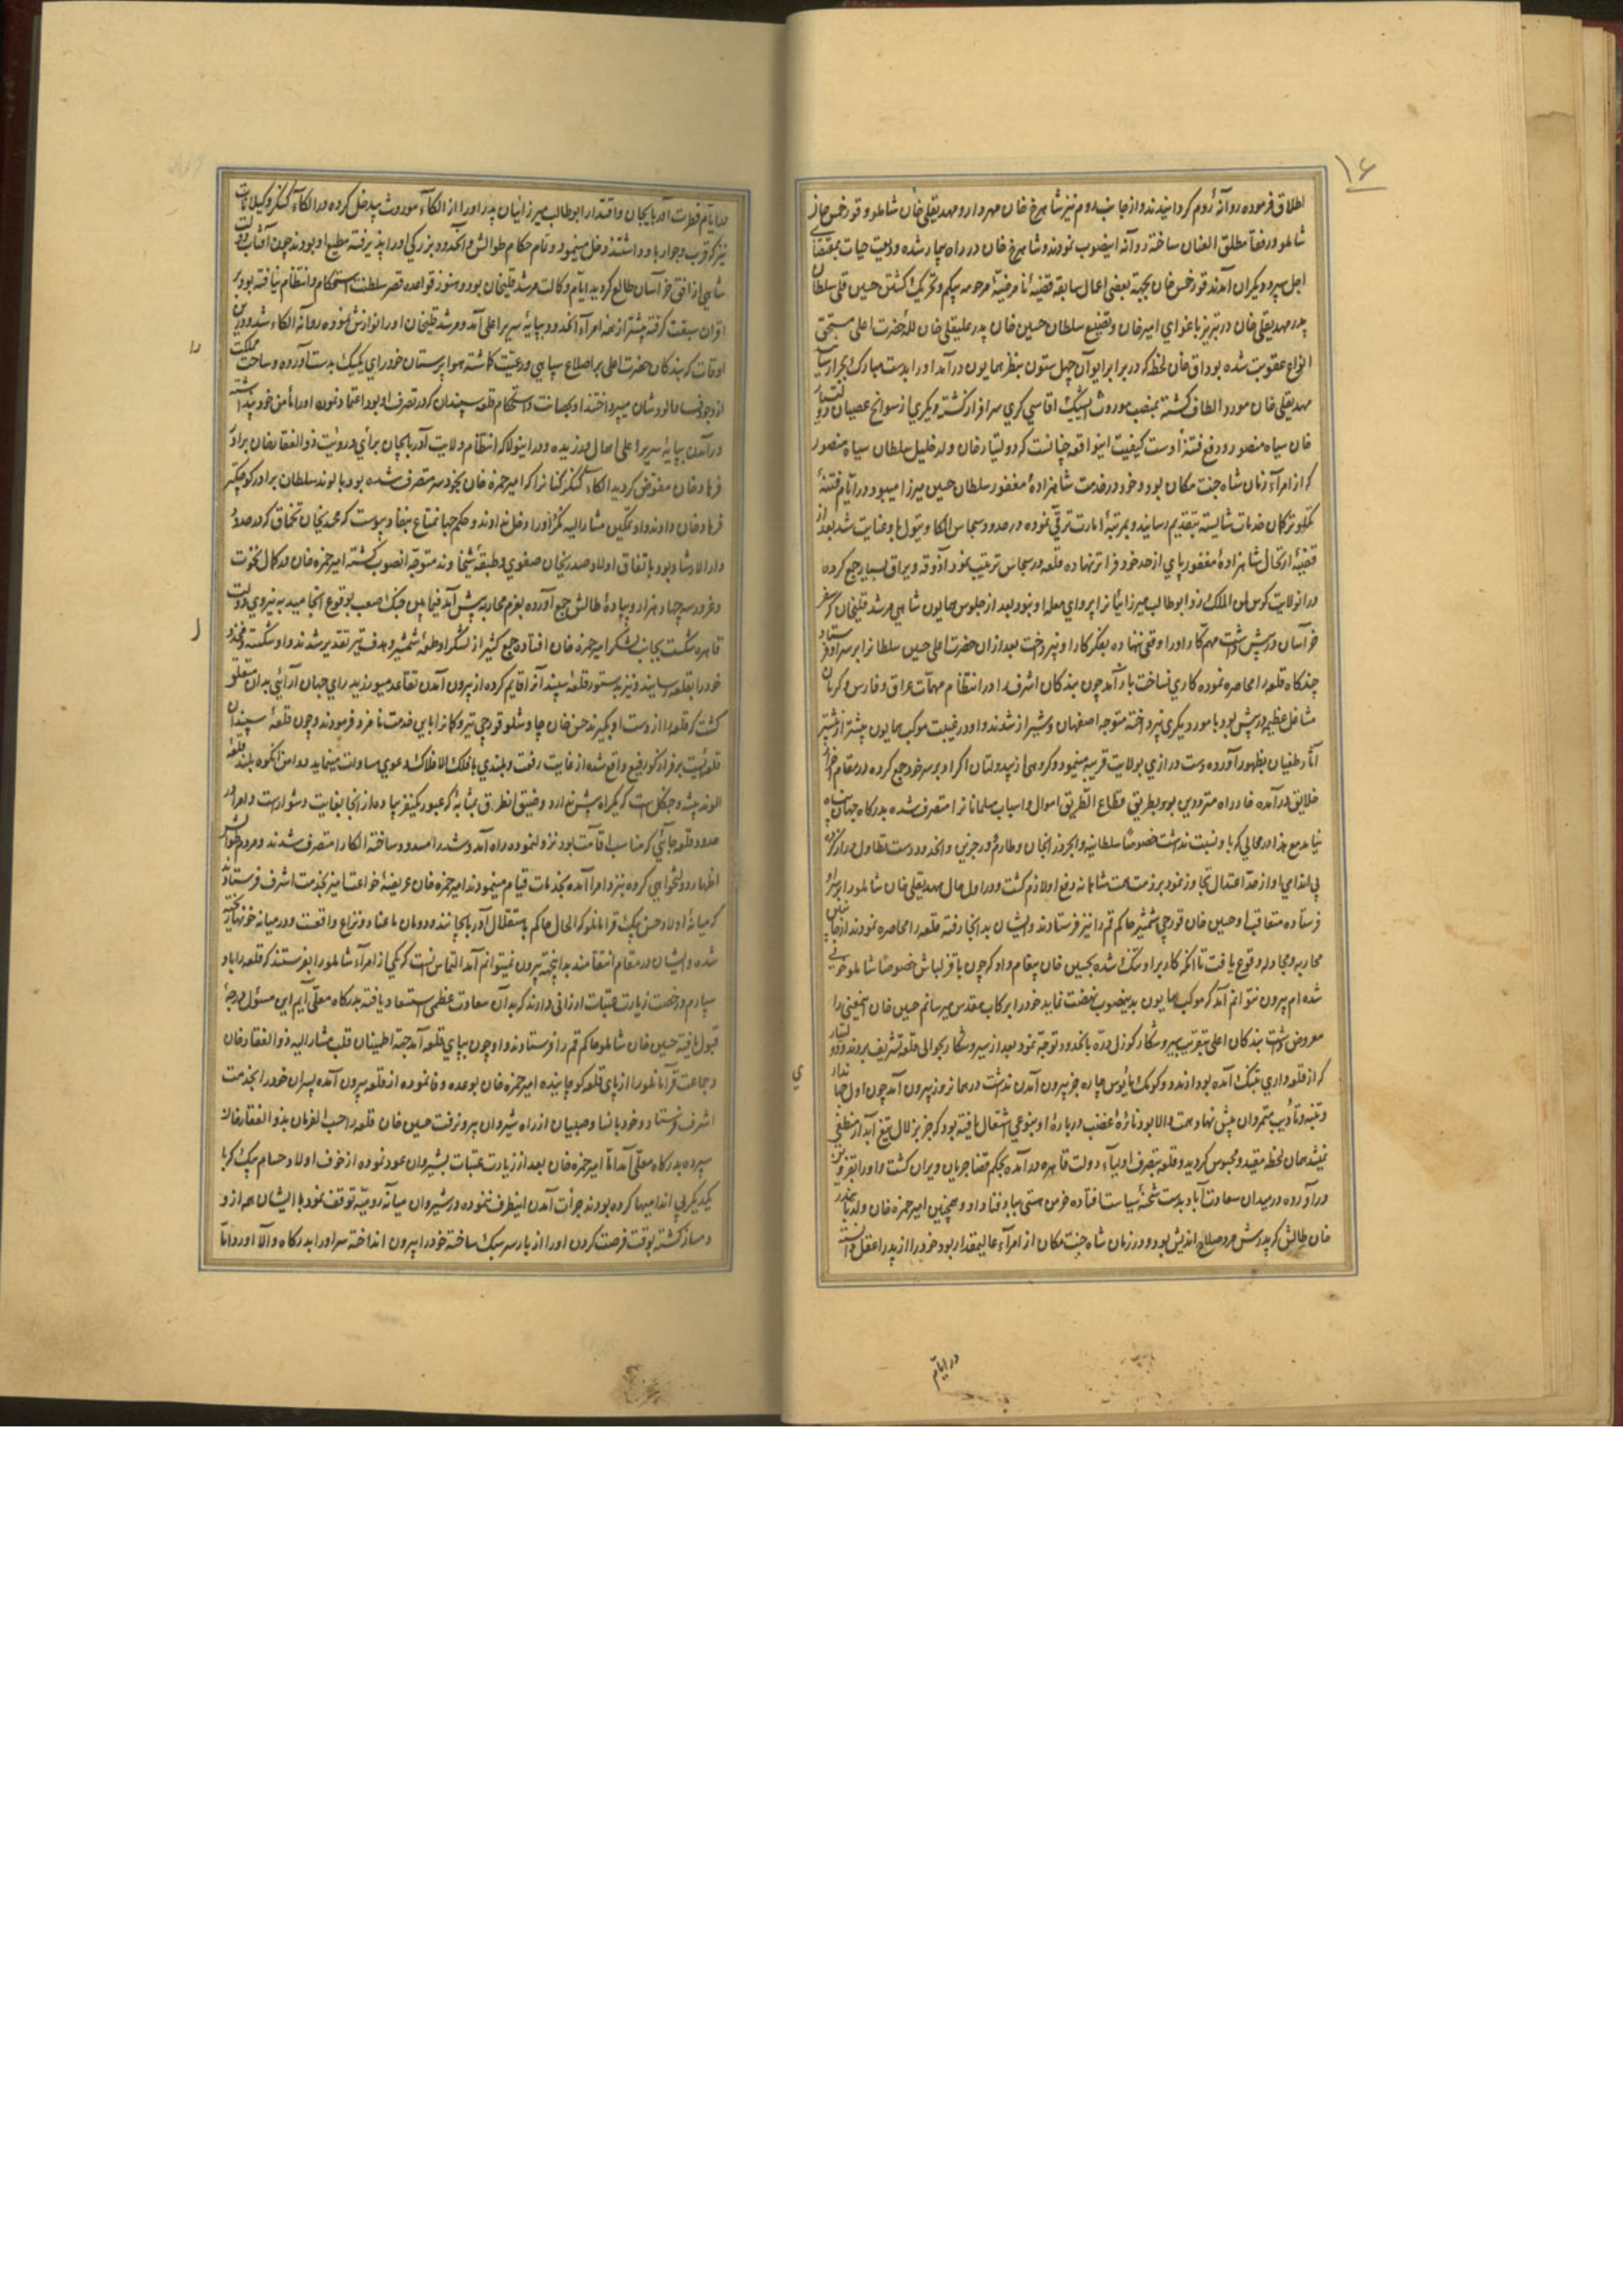 ۱۶
اطلاق فرموده روانهٔ روم گردانیدند و از جانب روم نیز شاهرخ خان مهردار و مهدیقلی خان شاملو و قورخمس خان
شاملو و رفقا مطلق العنان ساخته روانه اینصوب نمودند و شاهرخ خان در راه بیمار شده ودیعت حیات بمتقاضی
اجل سپرد و دیگران آمدند قورخمس خان بجهة بعضی اعمال سابقه قضیهٔ نامرضیهٔ مرحومه بیگم و تحریک کشتن حسین قلی سلطان
پدر مهدیقلی خان در تبریز باغوای امیر خان و تضییع سلطان حسین خان پدر علیقلی خان للهٔ حضرت اعلی مستحق
انواع عقوبت شده بود اق خان لحظه که در برابر ایوان چهل ستون بنظر همایون درآمد او را بدست مبارک
مهدیقلی خان مورد الطاف گشته بمنصب موروث ایشیک اقاسی گری سرافراز گشته و یکری از سوانح عصیان دولتیار
خان سیاه منصور و دفع فتنهٔ اوست کیفیت اینواقعه چنانست که دولتیار خان ولد خلیل سلطان سیاه منصور
که از امرآء زمان شاه جنت مکان بود و خود در خدمت شاهزادهٔ مغفور سلطان حسین میرزا میبود در ایام فتنهٔ
تکلو و ترکان خدمات شایسته بتقدیم رسانید و بمرتبهٔ امارت ترقی نموده در حدود سجاس الکا و تیول باو عنایت شد بعد از
قضیهٔ ارتحال شاهزادهٔ مغفور پای از حد خود فراتر نهاده قلعه در سجاس ترتیب نمود آذوقه و یراق بسیار جمع کرده
در انولایت کوس لمن الملک زد و ابوطالب میرزائیانرا پروای معامله او نبود بعد از جلوس همایون شاهی مرشد قلیخان که سفر
خراسان در پیش داشت مهم او را وقعی ننهاده بفکر کار او نپرداخت بعد از ان حضرت اعلی حسین سلطانرا بر سر او فرستاد
چند گاه قلعه را محاصره نموده کاری نساخت باز آمد چون بندگان اشرف را در انتظام مهمات عراق و فارس و کرمان
مشاغل عظیم در پیش بود بامور دیگری نپرداخته متوجه اصفهان و شیراز شدند و او در غیبت موکب همایون پیشتر از پیشتر
آثار طغیان بظهور آورده دست درازی بولایت قریبه مینمود و گروهی از بیدولتان اکراد بر سر خود جمع کرده در مقام
خلایق درآمده خار راه مترددین بود و بطریق قطاع الطریق اموال و اسباب مسلمانانرا متصرف شده بدرگاه جهان پناه
نیامد مع هذا در محالی که باو نسبت نداشت خصوصا سلطانیه و ابهر و زنجان و طارم و درجزین و انحدود دست تطاول دراز کرده
بی اندامی او از حد اعتدال تجاوز نمود بر ذمت همت شاهانه دفع او لازم گشت و در اول حال مهدیقلی خان شاملو را بر سر او
فرستاده متعاقب او حسین خان قورچی شمشیر حاکم قم را نیز فرستادند و ایشان بدانجا رفته قلعه را محاصره نمودند از جانبین
محاربه و مجادله وقوع یافت تا انکه کار بر او تنگ شده بحسین خان پیغام داد که چون با قزلباش خصوصا شاملو خونی
شده ام بیرون نتوانم آمد اگر موکب همایون بدینصوب نهضت نماید خود را برکاب مقدس میرسانم حسین خان اینمعنی را
معروض داشت بندگان اعلی بتقریب سیر و شکار کوزل دره بانحدود توجه نمود بعد از سیر و شکار بحوالی قلعه تشریف بردند دولتیار
که از قلعه داری بتنگ آمده بود از مدد و کومک مأیوس چاره جز بیرون آمدن نداشت در همان روز بیرون آمد چون
و تنبیه و تأدیب متمردان پیش نهاد همت والا بود نائرهٔ غضب در بارهٔ او بنوعی اشتعال یافته بود که جز بزلال تیغ آبدار منطفی
نمیشد همان لحظه مقید و محبوس گردید و قلعه بتصرف اولیآء دولت قاهره درآمده بحکم قضا جریان ویران گشت و او را بقزوین
درآورده در میدان سعادت آباد بدست شحنهٔ سیاست افتاده خرمن هستی بباد فنا داد و همچنین امیر حمزه خان ولد
خان طالش که پدرش مرد صلاح اندیش بود و در زمان شاه جنت مکان از امرآء عالیمقدار بود خود را از پدر اعقل دانسته
در ایام
در ایام فطرات آذربایجان و اقتدار ابوطالب میرزائیان پدر او را از الکآء موروث بیدخل کرده در الکآء لنکر و کیلانات
نیز که قرب و جوار باو داشتند دخل مینمود و تمام حکام طوالش و انحدود بزرگی او را پذیرفته مطیع او بودند چون آفتاب دولت
شاهی از افق خراسان طالع گردید ایام وکالت مرشد قلیخان بود و هنوز قواعد قصر سلطنت استحکام و انتظام نیافته بود بر
اقران سبقت گرفته پیشتر از همه امرآء انحدود بپایهٔ سریر اعلی آمد و مرشد قلیخان او را نوازش نموده روانه الکاء شد و درین
اوقات که بندگان حضرت اعلی بر اصلاح سپاهی و رعیت گماشته هواپرستان خودرای یک یک بدست آورده و ساحت مملکت
از میپرداختند او بحصانت و استحکام قلعه سپندان که در تصرف او بود اعتماد نموده او را مأمن خود پنداشته
در آمدن بپایهٔ سریر اعلی اهمال ورزیده و در اینولا که انتظام ولایت آذربایجان برأی و رویت ذوالفقار خان برادر
فرهاد خان مفوض گردید الکاء لنکر کنانرا که امیر حمزه خان بخودسر متصرف شده بود بالوند سلطان برادر کوچکتر
فرهاد خان دادند و او تمکین مشار الیه نکرد او را دخل نداد و حکم جهانمطاع بنفاذ پیوست که محمدیخان تخماق که در حدود
دار الارشاد بود باتفاق اولاد صدرالدین خان صفوی و طبقهٔ شیخاوند متوجه انصوب گشته امیر حمزه خان در کمال نخوت
و غرور سه چهار هزار پیادهٔ طالش جمع آورده بعزم محاربه پیش آمد فیمابین جنگ صعب بوقوع انجامید به نیروی دولت
قاهره شکست بجانب لشکر امیر حمزه خان افتاده جمع کثیر از لشکر او طعمهٔ شمشیر و هدف تیر تقدیر شدند و او شکسته
خود را بقلعه رسانید و نیز بدستور قلعهٔ سپندانرا قایم کرده از بیرون آمدن تقاعد میورزید رای جهان آرا بدان متعلق
گشت که قلعه را از دست او بگیرند حسن خان چاوشلو قورچی تیر و کمانرا باین خدمت نامزد فرمودند و چون قلعهٔ سپندان
قلعهٔ ایست بر فراز کوه رفیع واقع شده از غایت رفعت و بلندی با فلک الافلاک دعوی مساوات مینماید و دامن انکوه بلند قلعهٔ
الوند بیشه و جنگل است که یکراه بیش ندارد و ضیق انطرق بمثابهٔ که عبور یکنفر پیاده از انجا بغایت دشوار است و امراء
حدود قلعه جائی که مناسب اقامت بود نزول نموده راه آمد و شد را مسدود ساخته الکا را متصرف شدند و مردم طوالش
اظهار دولتخواهی کرده نزد امرا آمده بخدمات قیام مینمودند امیر حمزه خان عریضهٔ ضراعت آمیز بخدمت اشرف فرستاد
که میانهٔ اولاد حسن بیک قرامانلو که الحال حاکم باستقلال آذربایجانند و دودمان ما عناد و نزاع واقعست و در میانه خونها ریخته
شده و ایشان در مقام انتقامند بدینجهة بیرون نمیتوانم آمد التماس انست که یکی از امرآء شاملو را بفرستند که قلعه را باو
سپارم و رخصت زیارت عتبات ارزانی دارند که بدان سعادت عظمی استسعاد یافته بدرگاه معلی آیم این مسئول درجهٔ
قبول یافته حسین خان شاملو حاکم قم را فرستادند و او چون بپای قلعه آمد جهة اطمینان قلب مشار الیه ذوالفقار خان
و جماعت قرامانلو را از پای قلعه کوچانیده امیر حمزه خان بوعده وفا نموده از قلعه بیرون آمده پسران خود را بخدمت
اشرف فرستاد و خود با نسا و صبیان از راه شیروان بیرون رفت حسین خان قلعه را حسب الفرمان بذوالفقار خان
سپرده بدرگاه معلی آمد اما امیر حمزه خان بعد از زیارت عتبات بشیروان عود نموده از خوف اولاد حسام بیک که با
یکدیگر بی اندامیها کرده بودند جرأت آمدن اینطرف ننموده در شیروان میانه رومیه توقف نمود تا ایشان همراز و
دمساز گشته بوقت فرصت گردن او را از بار سر سبک ساخته خود را بیرون انداخته سر او را بدرگاه والا آوردند اما